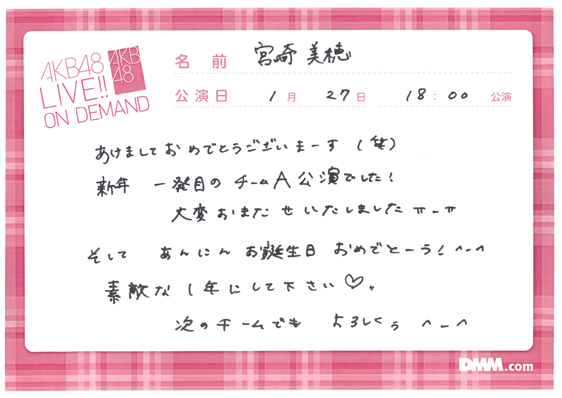 AKB48
LIVE!!
ON DEMAND
AKB
48
名前 宮崎美穂
公演日 1月 27日 18:00 公演
あけましておめでとうございまーす (笑)
新年 一発目の チームA公演でした!
大変おまたせいたしました π-π
そして あんにん お誕生日 おめでとーう! ^-^
素敵な 1年にして下さい♡。
次のチームでも よろしくぅ ^-^
DMM.com